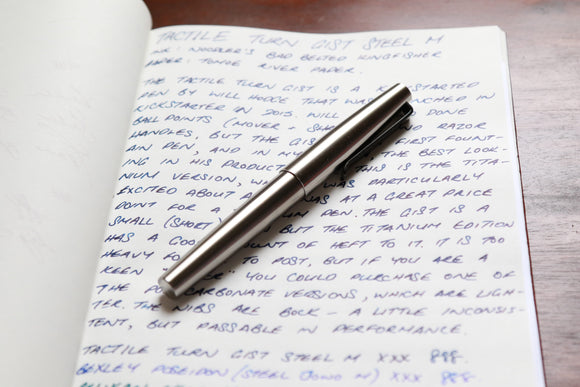 TACTILE TURN GIST STEEL M
INK: NOODLER'S BAD BELTED KINGFISHER
PAPER: TOMOE RIVER PAPER.
THE TACTILE TURN GIST IS A KICKSTARTED
PEN BY WILL HODGE THAT WAS LAUNCHED IN
KICKSTARTER IN 2015. WILL DONE
BALL POINTS (MOVER + AND RAZOR
HANDLES, BUT THE FIRST FOUNT-
AIN PEN, AND IN MY THE BEST LOOK-
ING IN HIS PRODUCT THIS IS THE TITA-
NIUM VERSION, WAS PARTICULARLY
EXCITED ABOUT AS A GREAT PRICE
POINT FOR A PEN. THE GIST IS A
SMALL (SHORT BUT THE TITANIUM EDITION
HAS A GOOD OF HEFT TO IT. IT IS TOO
HEAVY TO POST, BUT IF YOU ARE A
KEEN YOU COULD PURCHASE ONE OF
THE VERSIONS, WHICH ARE LIGH-
TER. THE NIBS ARE BOCK - A LITTLE INCONSIS-
TENT, BUT PASSABLE IN PERFORMANCE.
TACTILE TURN GIST STEEL M XXX
BEXLEY POSEIDON (STEEL M) XXX